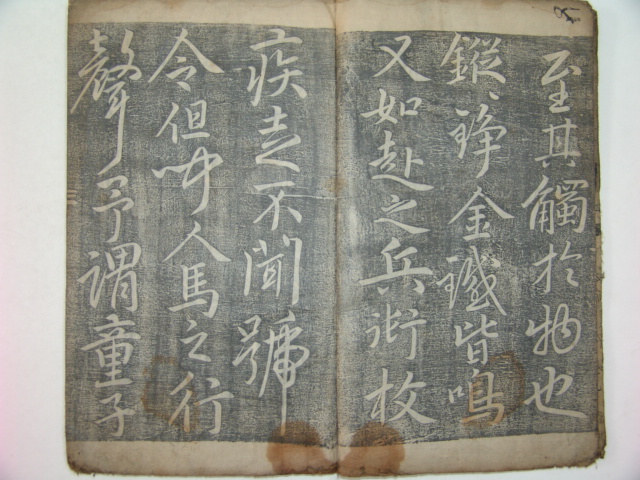 至其觸於物也
鏦〻錚金鐵皆鳴
又如赴之兵銜枚
疾走不聞號
令但人馬之行
聲予謂童子